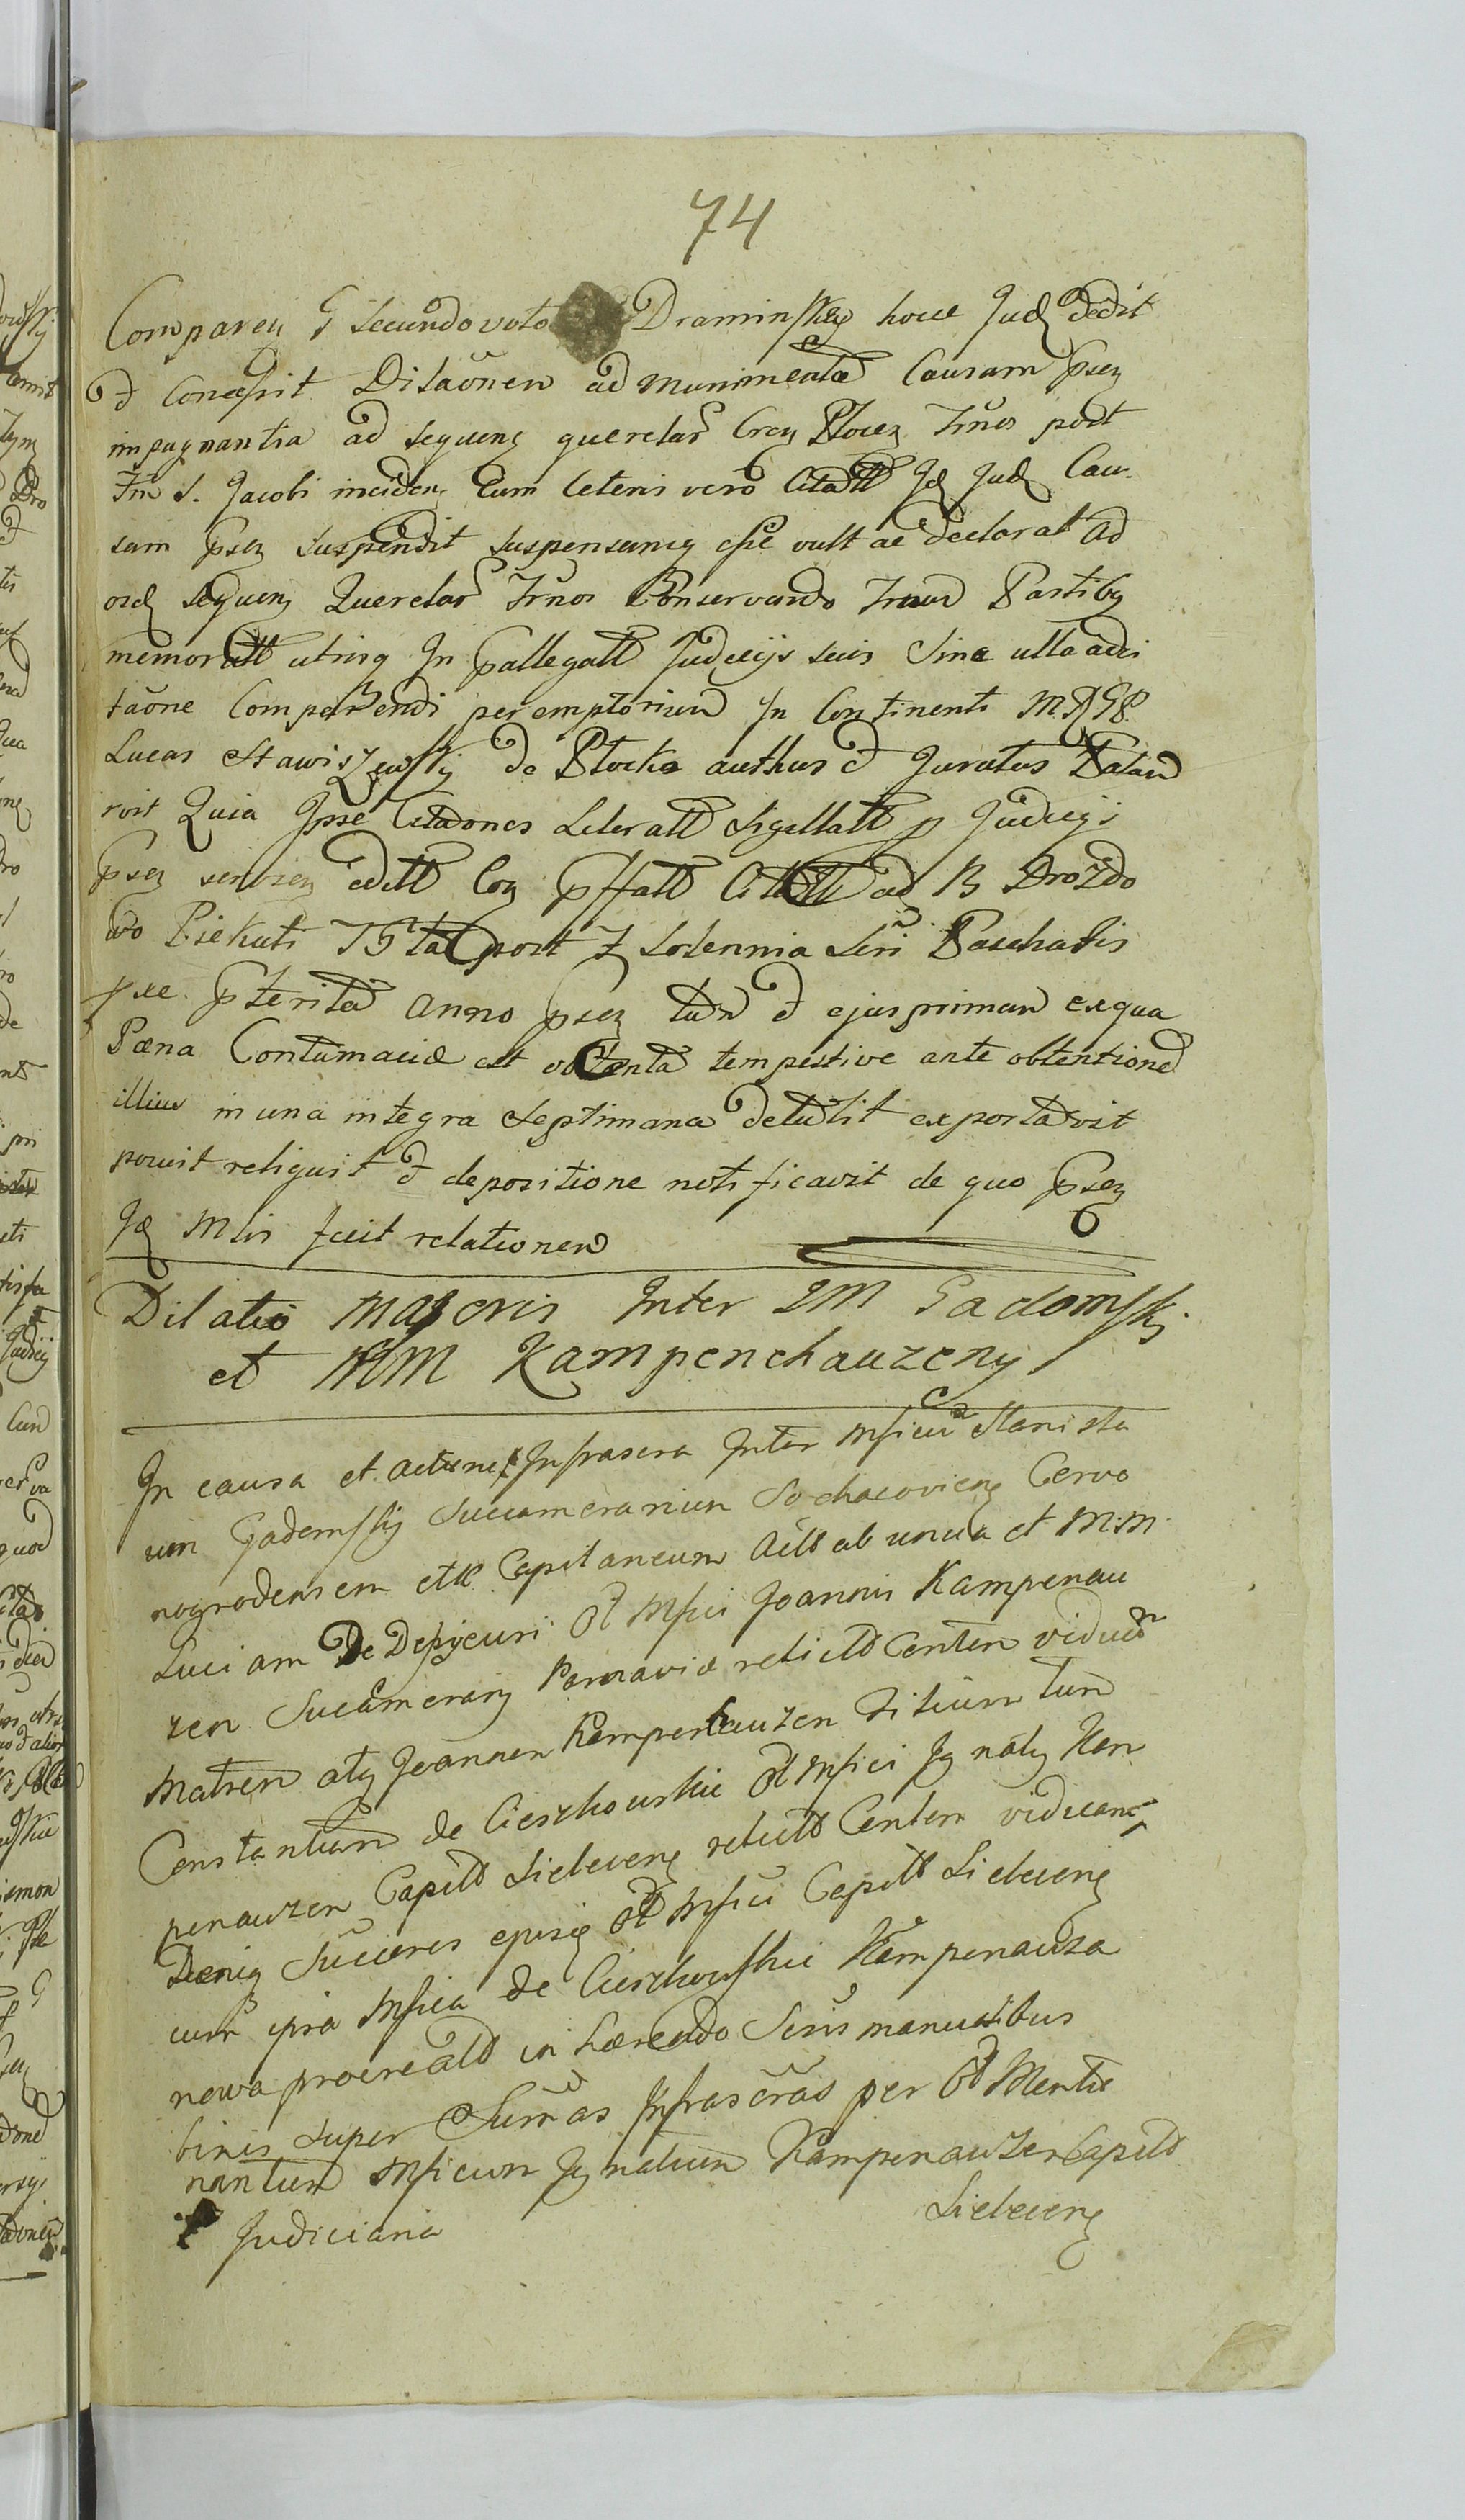 74
Comparen G secundo voto Draminskey hocce Jud dedit
et Concessit Dilaōnen ad munimenta Causam psen
impugnantia ad sequens querelar Cren Plocen Trnos post
Ftm S. Jacobi inciden Cum Ceteris vero Citatt Id Jud Cau-
sam psen suspendit suspensamq esse vult ac declarat ad
osd sequens Querelar Trnos Conservando Trnum Partibq
memoratt utrisq In pallegatt Judicijs suis Sine ulla adci
taōne Comparendi peremptorium In Continenti MRGP.
Lucas Stawiszewsky de Plocko authus et Juratus Palam
Quia Ipse Citaones Literatt Sigillatt p Judicijs
psen editt Con pffatt Citatt ad B Drozdo
wo Piekuti post Solennia Feri Paschalis
pterita anno psen tum et ejus primam ex qua
Pæna Contumaciæ est obtenta tempestive ante obtentionem
illius in una integra septimana detulit exportavit
posuit reliquit et depositione notificavit de quo psen
Id Mtis fecit relationem
Dilatio majoris Inter IM Gadomski
et MM Kampenchauzeny
In causa et actione Infrascra Inter Mficum Stanisla
um Gadomsky Succamerarium Sochacovien Cervo
nogrodensem ettc Capitaneum Actt ab una et M.M.
Luciam De Depijcuri Ol Mfici Joannis Kampenau
zen Succamerarij Parnaviæ relictt Conten viduam
Matrem atq Joannem Kampenhauzen Filium tum
Constantiam de Cieszkowskie Ol Mfici Ignatij Kam
penauzen Capitt Lielecen relictt Conten viduam
Deniq Succeres ejusq Ol Mfici Capitt Lielecen
cum ipsa Mfica de Cieszkowskie Kampenauza
nowa procreatt in hærendo Scris manualibus
binis super Summas Infrascras per Ol Mentio
nantum Mficum Ignatium Kampenauzen Capitt
Judiciaria Lielecen